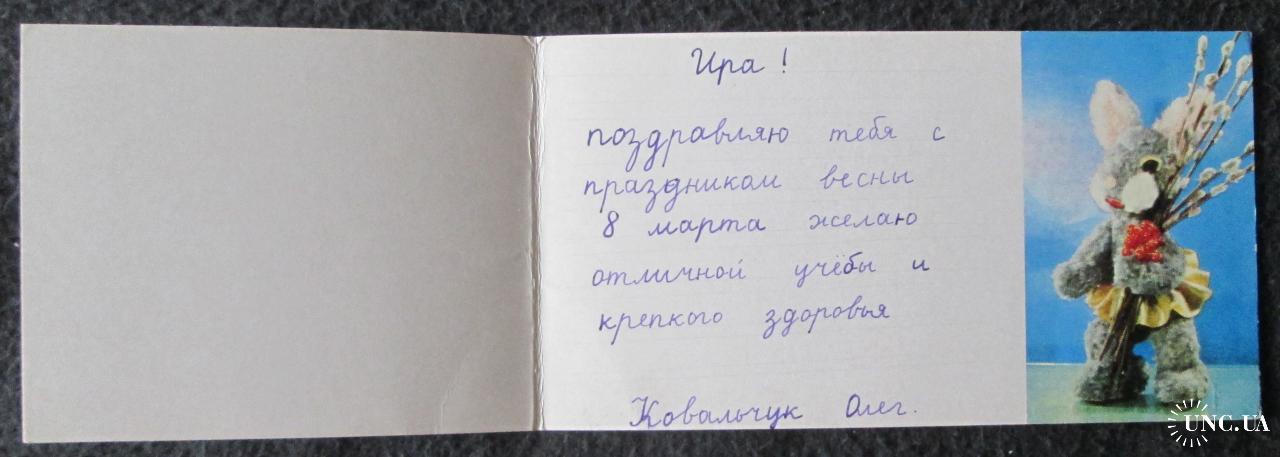 Ира!
поздравляю тебя с
праздником весны
8 марта желаю
отличной учёбы и
крепкого здоровья
Ковальчук Олег.
UNC.UA